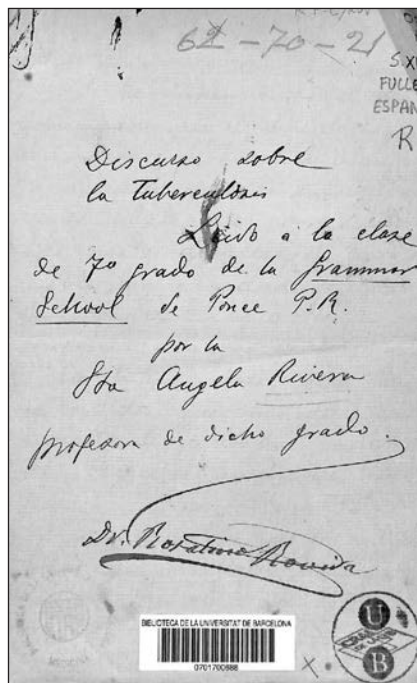 62-70-21
S.XI
FULLE
ESPAÑ
R
Discurso sobre
la Tuberculosis
Leido á la clase
de 7º grado de la Grammar
School de Ponce P.R.
por la
Sta Angela Rivera
profesora de dicho grado.
Dr.
BIBLIOTECA DE LA UNIVERSITAT DE BARCELONA
0701700888
X
U
B